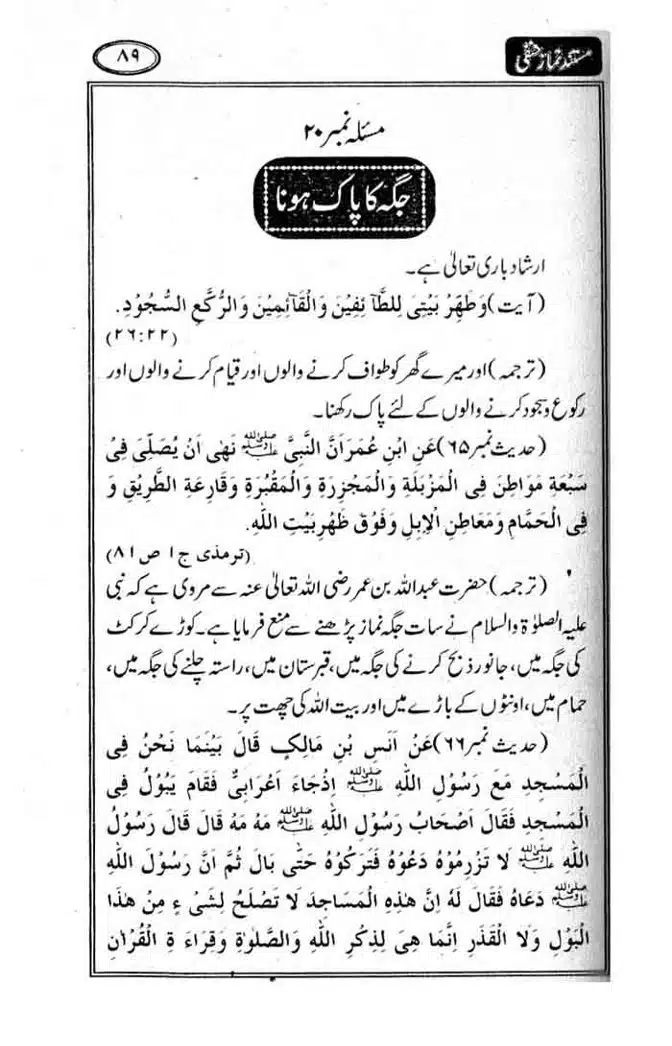 مستند نماز حنفی
۸۹
مسئلہ نمبر ۲۰
جگہ کا پاک ہونا
ارشاد باری تعالیٰ ہے۔
(آیت) وَطَهِّرْ بَيْتِيَ لِلطَّآئِفِيْنَ وَالْقَآئِمِيْنَ وَالرُّكَّعِ السُّجُوْدِ.
(۲۶:۲۲)
(ترجمہ) اور میرے گھر کو طواف کرنے والوں اور قیام کرنے والوں اور
رکوع وسجود کرنے والوں کے لئے پاک رکھنا۔
(حدیث نمبر ۶۵) عَنِ ابْنِ عُمَرَ اَنَّ النَّبِیَّ ﷺ نَهٰی اَنْ يُصَلّٰی فِیْ
سَبْعَةِ مَوَاطِنَ فِی الْمَزْبَلَةِ وَالْمَجْزِرَةِ وَالْمَقْبُرَةِ وَقَارِعَةِ الطَّرِيْقِ وَ
فِی الْحَمَّامِ وَمَعَاطِنِ الْاِبِلِ وَفَوْقَ ظَهْرِ بَيْتِ اللّٰهِ.
(ترمذی ج ۱ ص ۸۱)
(ترجمہ) حضرت عبداللہ بن عمر رضی اللہ تعالیٰ عنہ سے مروی ہے کہ نبی
علیہ الصلوٰۃ والسلام نے سات جگہ نماز پڑھنے سے منع فرمایا ہے۔ کوڑے کرکٹ
کی جگہ میں، جانور ذبح کرنے کی جگہ میں، قبرستان میں، راستہ چلنے کی جگہ میں،
حمام میں، اونٹوں کے باڑے میں اور بیت اللہ کی چھت پر۔
(حدیث نمبر ۶۶) عَنْ اَنَسِ بْنِ مَالِكٍ قَالَ بَيْنَمَا نَحْنُ فِی
الْمَسْجِدِ مَعَ رَسُوْلِ اللّٰهِ ﷺ اِذْجَاءَ اَعْرَابِیٌّ فَقَامَ يَبُوْلُ فِی
الْمَسْجِدِ فَقَالَ اَصْحَابُ رَسُوْلِ اللّٰهِ ﷺ مَهْ مَهْ قَالَ قَالَ رَسُوْلُ
اللّٰهِ ﷺ لَا تَزْرِمُوْهُ دَعُوْهُ فَتَرَكُوْهُ حَتّٰی بَالَ ثُمَّ اَنَّ رَسُوْلَ اللّٰهِ
ﷺ دَعَاهُ فَقَالَ لَهُ اِنَّ هٰذِهِ الْمَسَاجِدَ لَا تَصْلُحُ لِشَیْءٍ مِنْ هٰذَا
الْبَوْلِ وَلَا الْقَذَرِ اِنَّمَا هِیَ لِذِكْرِ اللّٰهِ وَالصَّلٰوةِ وَقِرَاءَ ةِ الْقُرْاٰنِ